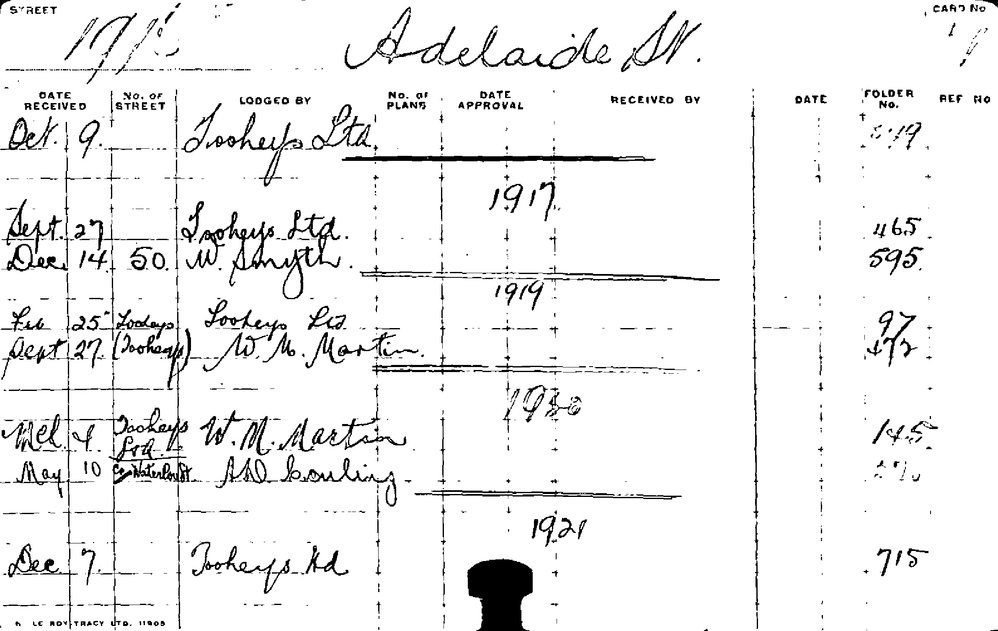 STREET
CARD NO
Adelaide St.
DATE RECEIVED NO. OF STREET LODGED BY NO. OF PLANS DATE APPROVAL RECEIVED BY DATE FOLDER NO. REF NO
Oct. 9. Tooheys Ltd.
1917.
Sept. 27 Tooheys Ltd. 465
Dec. 14 50. W. Smyth. 595
1919
Feb 25 Tooheys Tooheys Ltd 97
Sept 27 (Tooheys) W. M. Martin. 472
1920
Mch 4 Tooheys Ltd W. M. Martin 145
May 10 Waterloo St. Couling
1921
Dec 7. Tooheys Ltd 715
LE ROY TRACY LTD. 11905